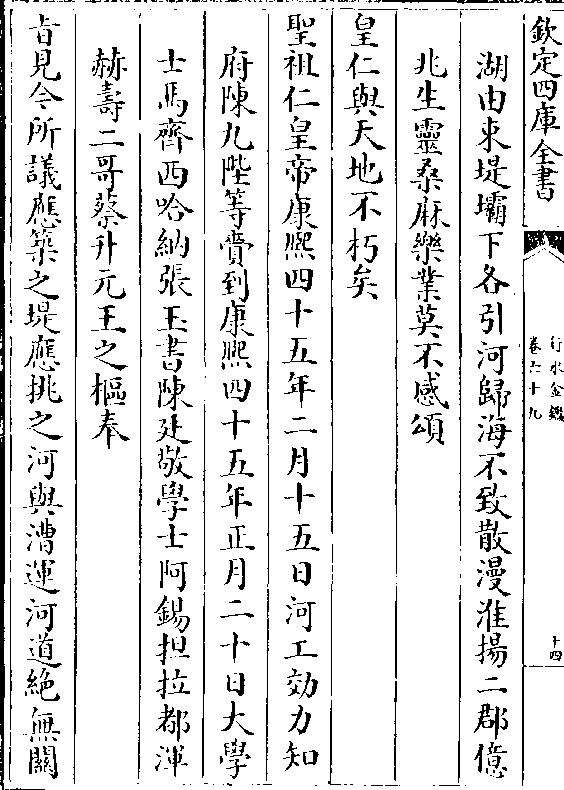 欽定四庫全書
行水金鑑
卷六十九
十四
湖由束堤壩下各引河歸海不致散漫淮揚二郡億
兆生靈桑麻樂業莫不感頌
皇仁與天地不朽矣
聖祖仁皇帝康熙四十五年二月十五日河工効力知
府陳九陛等賫到康熙四十五年正月二十日大學
士馬齊西哈納張玉書陳廷敬學士阿錫担拉都渾
赫壽二哥蔡升元王之樞奉
㫖見今所議應築之堤應挑之河與漕運河道絶無關